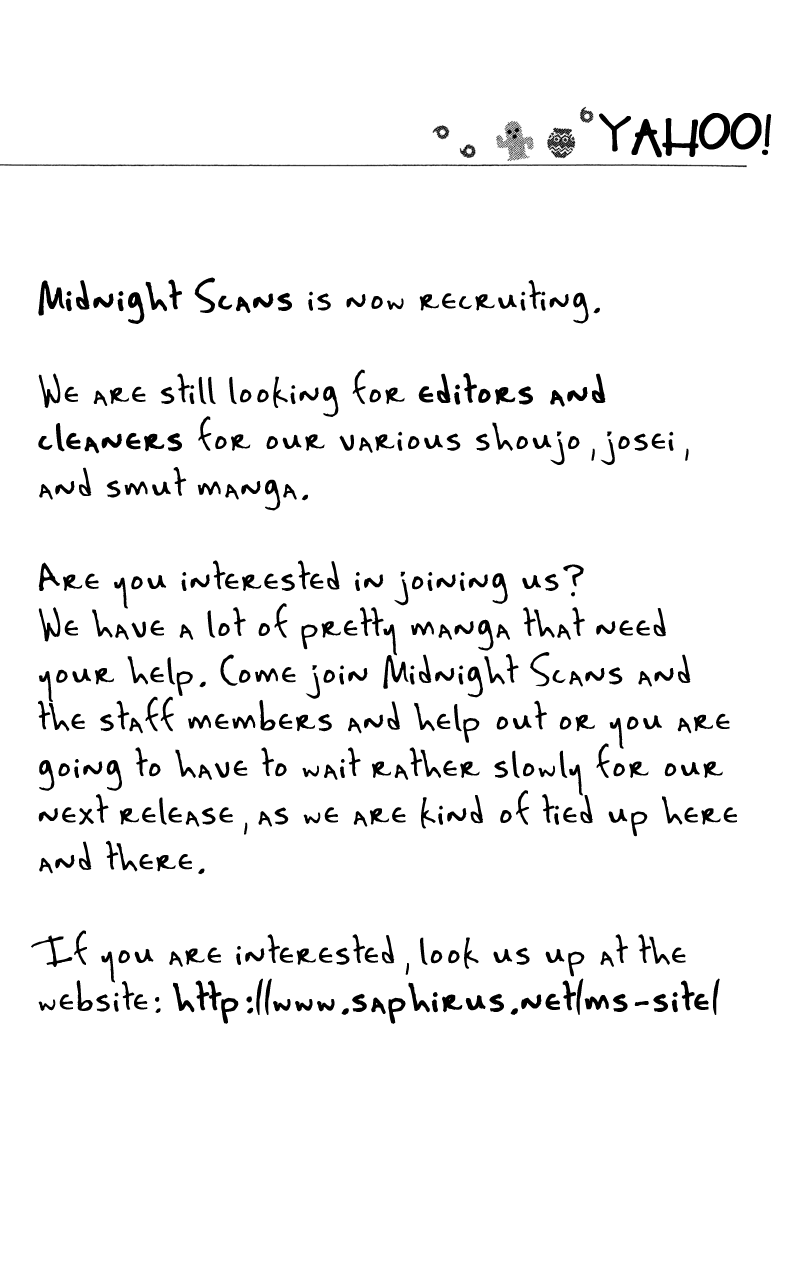 YAHOO!
Midnight Scans is now recruiting.
We are still looking for editors and
cleaners for our various shoujo, josei,
and smut manga.
Are you interested in joining us?
We have a lot of pretty manga that need
your help. Come join Midnight Scans and
the staff members and help out or you are
going to have to wait rather slowly for our
next release, as we are kind of tied up here
and there.
If you are interested, look us up at the
website: http://www.saphirus.net/ms-site/